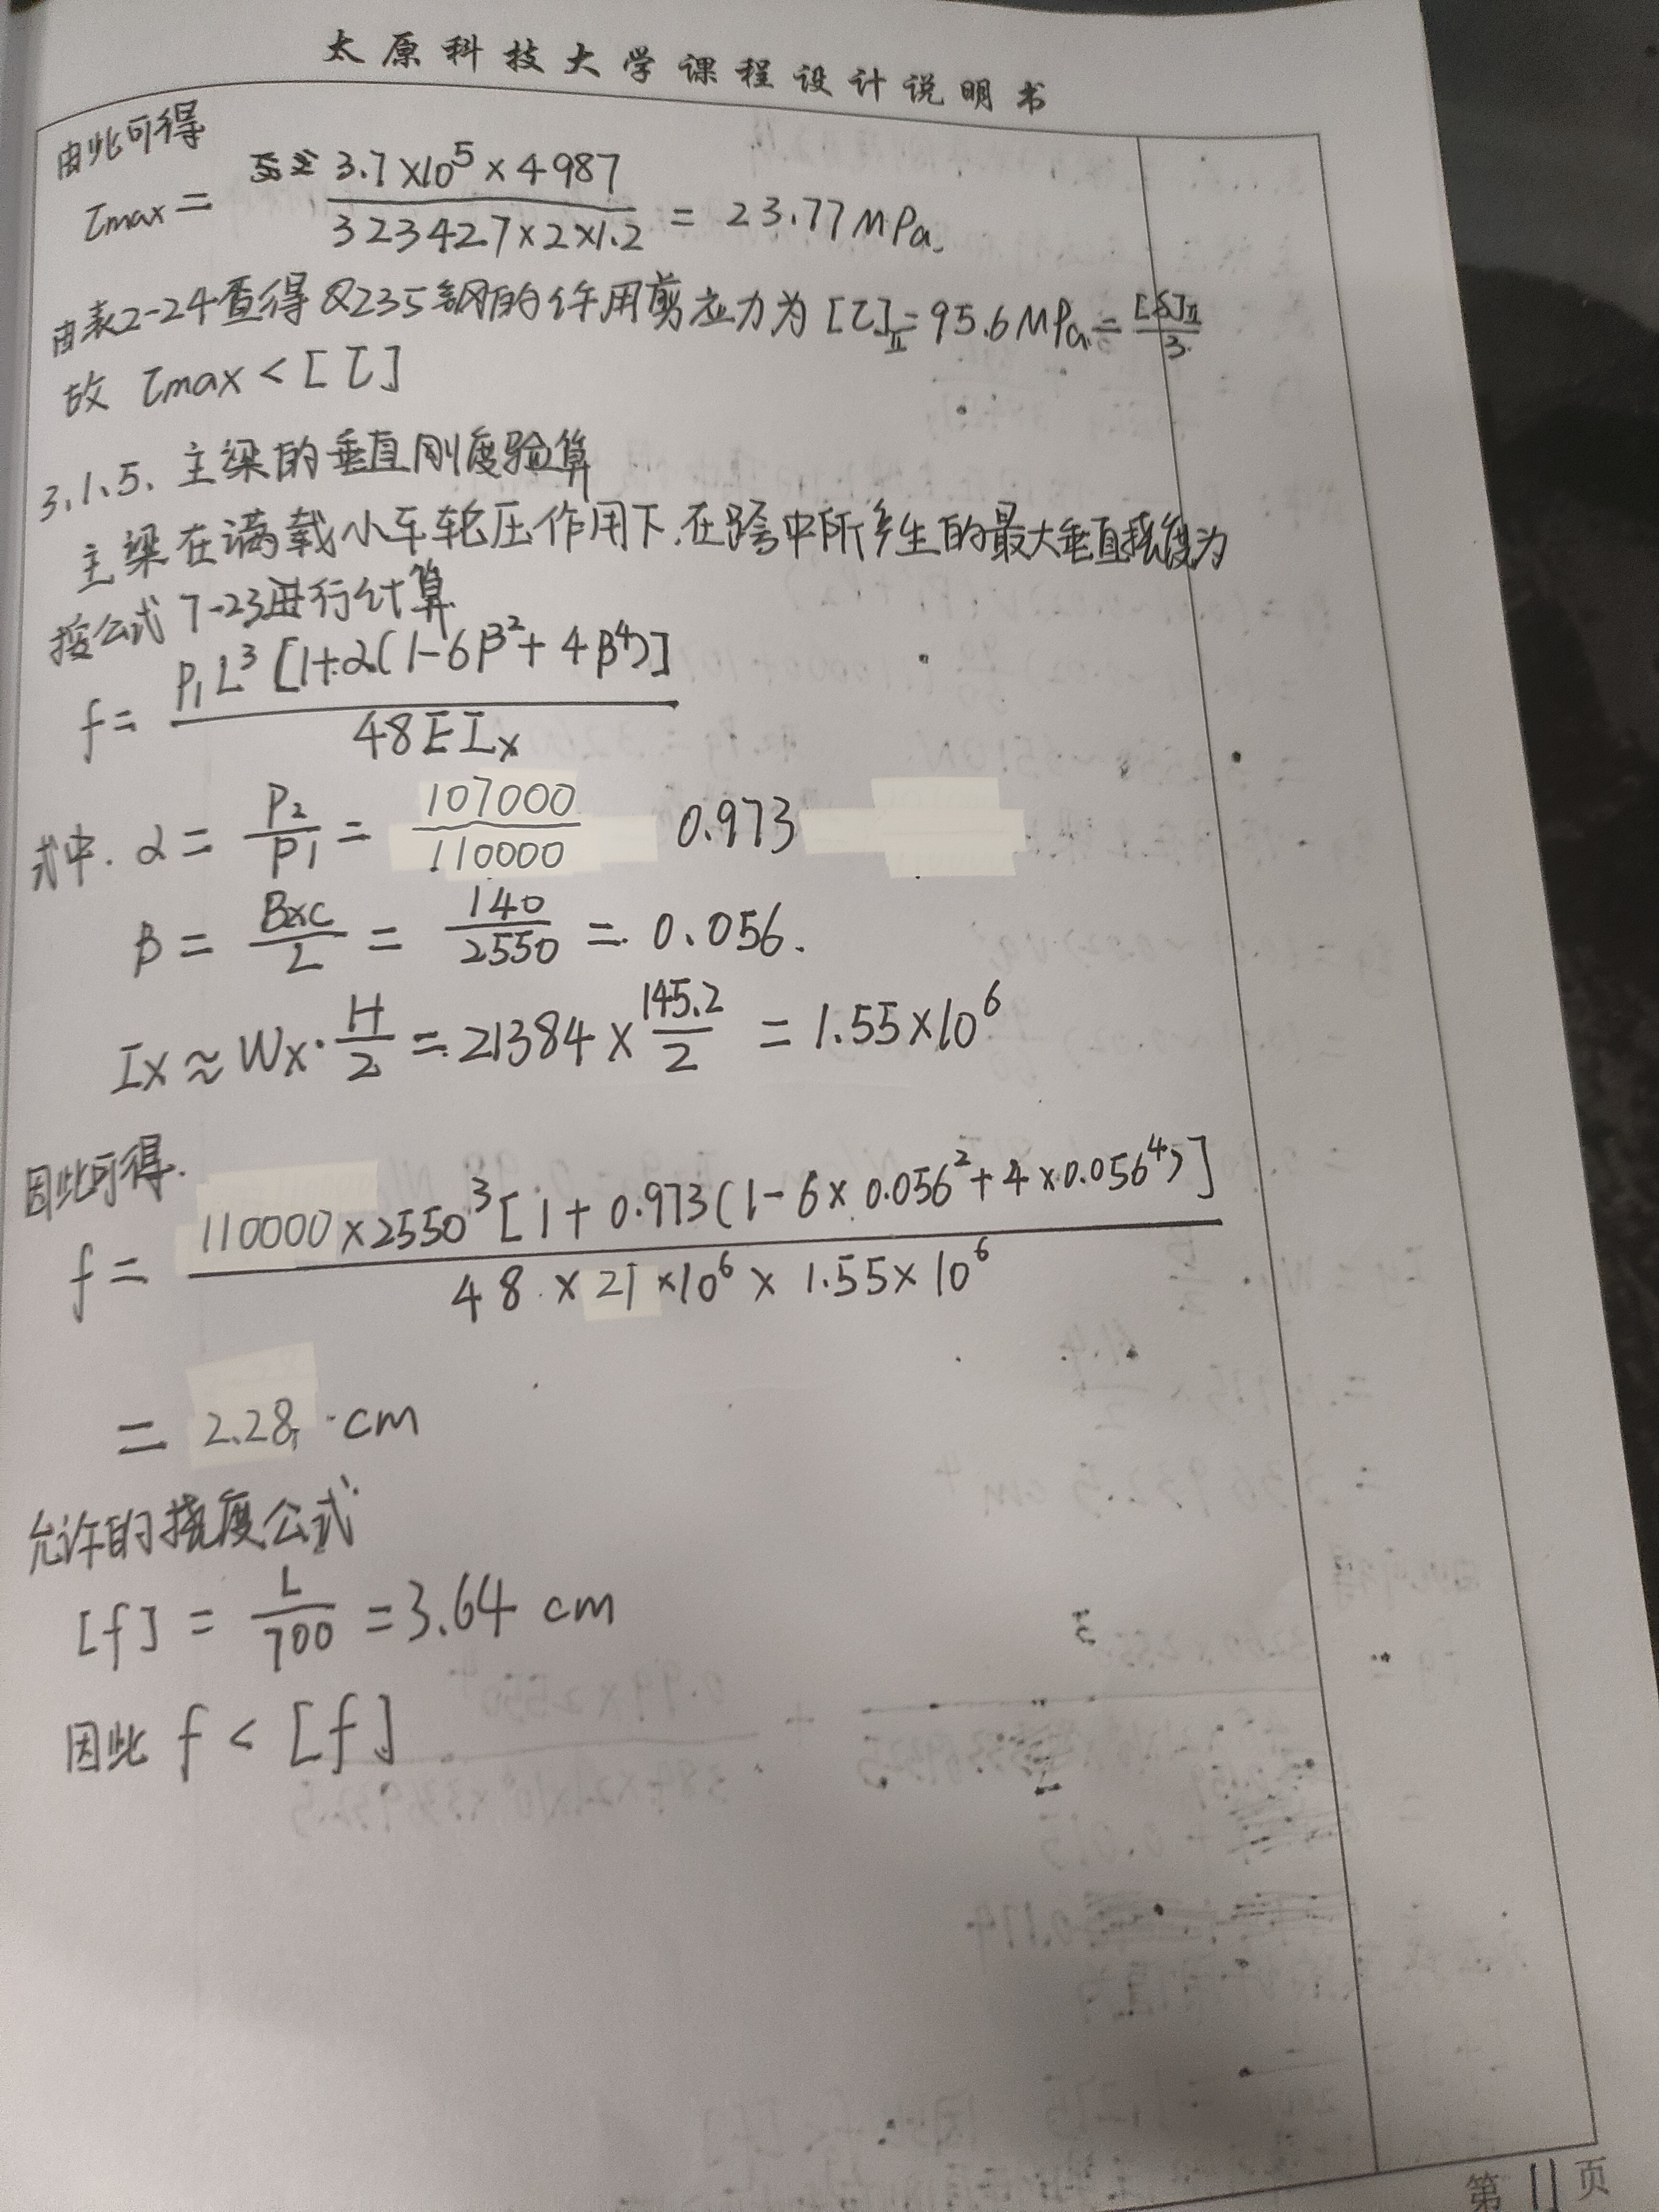 太原科技大学课程设计说明书
由此可得
τmax = 3.7×10^5×4987 / 323427×2×1.2 = 23.77MPa.
由表2-24查得Q235钢的许用剪应力为[τ]Ⅱ=95.6MPa=[δ]Ⅱ/3
故 τmax<[τ]
3.1.5. 主梁的垂直刚度验算
主梁在满载小车轮压作用下.在跨中所产生的最大垂直挠度为
按公式7-23进行计算
f= P₁L³[1+α(1-6β²+4β⁴)] / 48EIx
式中. α = P₂/P₁ = 107000/110000 0.973
β = Bxc/L = 140/2550 = 0.056.
Ix≈Wx·H/2=21384×145.2/2 = 1.55×10^6
因此可得.
f= 110000×2550³[1+0.973(1-6×0.056²+4×0.056⁴)] / 48×21×10^6×1.55×10^6
= 2.28 cm
允许的挠度公式
[f] = L/700 =3.64 cm
因此 f<[f]
第11页